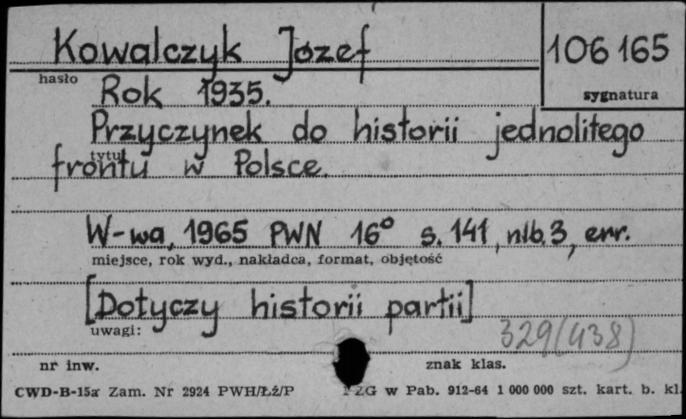 Kowalczyk Józef
106165
hasło
sygnatura
Rok 1935.
Przyczynek do historii jednolitego
tytuł
frontu w Polsce.
W-wa, 1965 PWN 16° s. 141, nlb. 3, err.
miejsce, rok wyd., nakładca, format, objętość
[Dotyczy historii partii]
uwagi:
329(438)
nr inw.
znak klas.
CWD-B-15a Zam. Nr 2924 PWH/Łź/P
ZG w Pab. 912-64 1 000 000 szt. kart. b. kl.